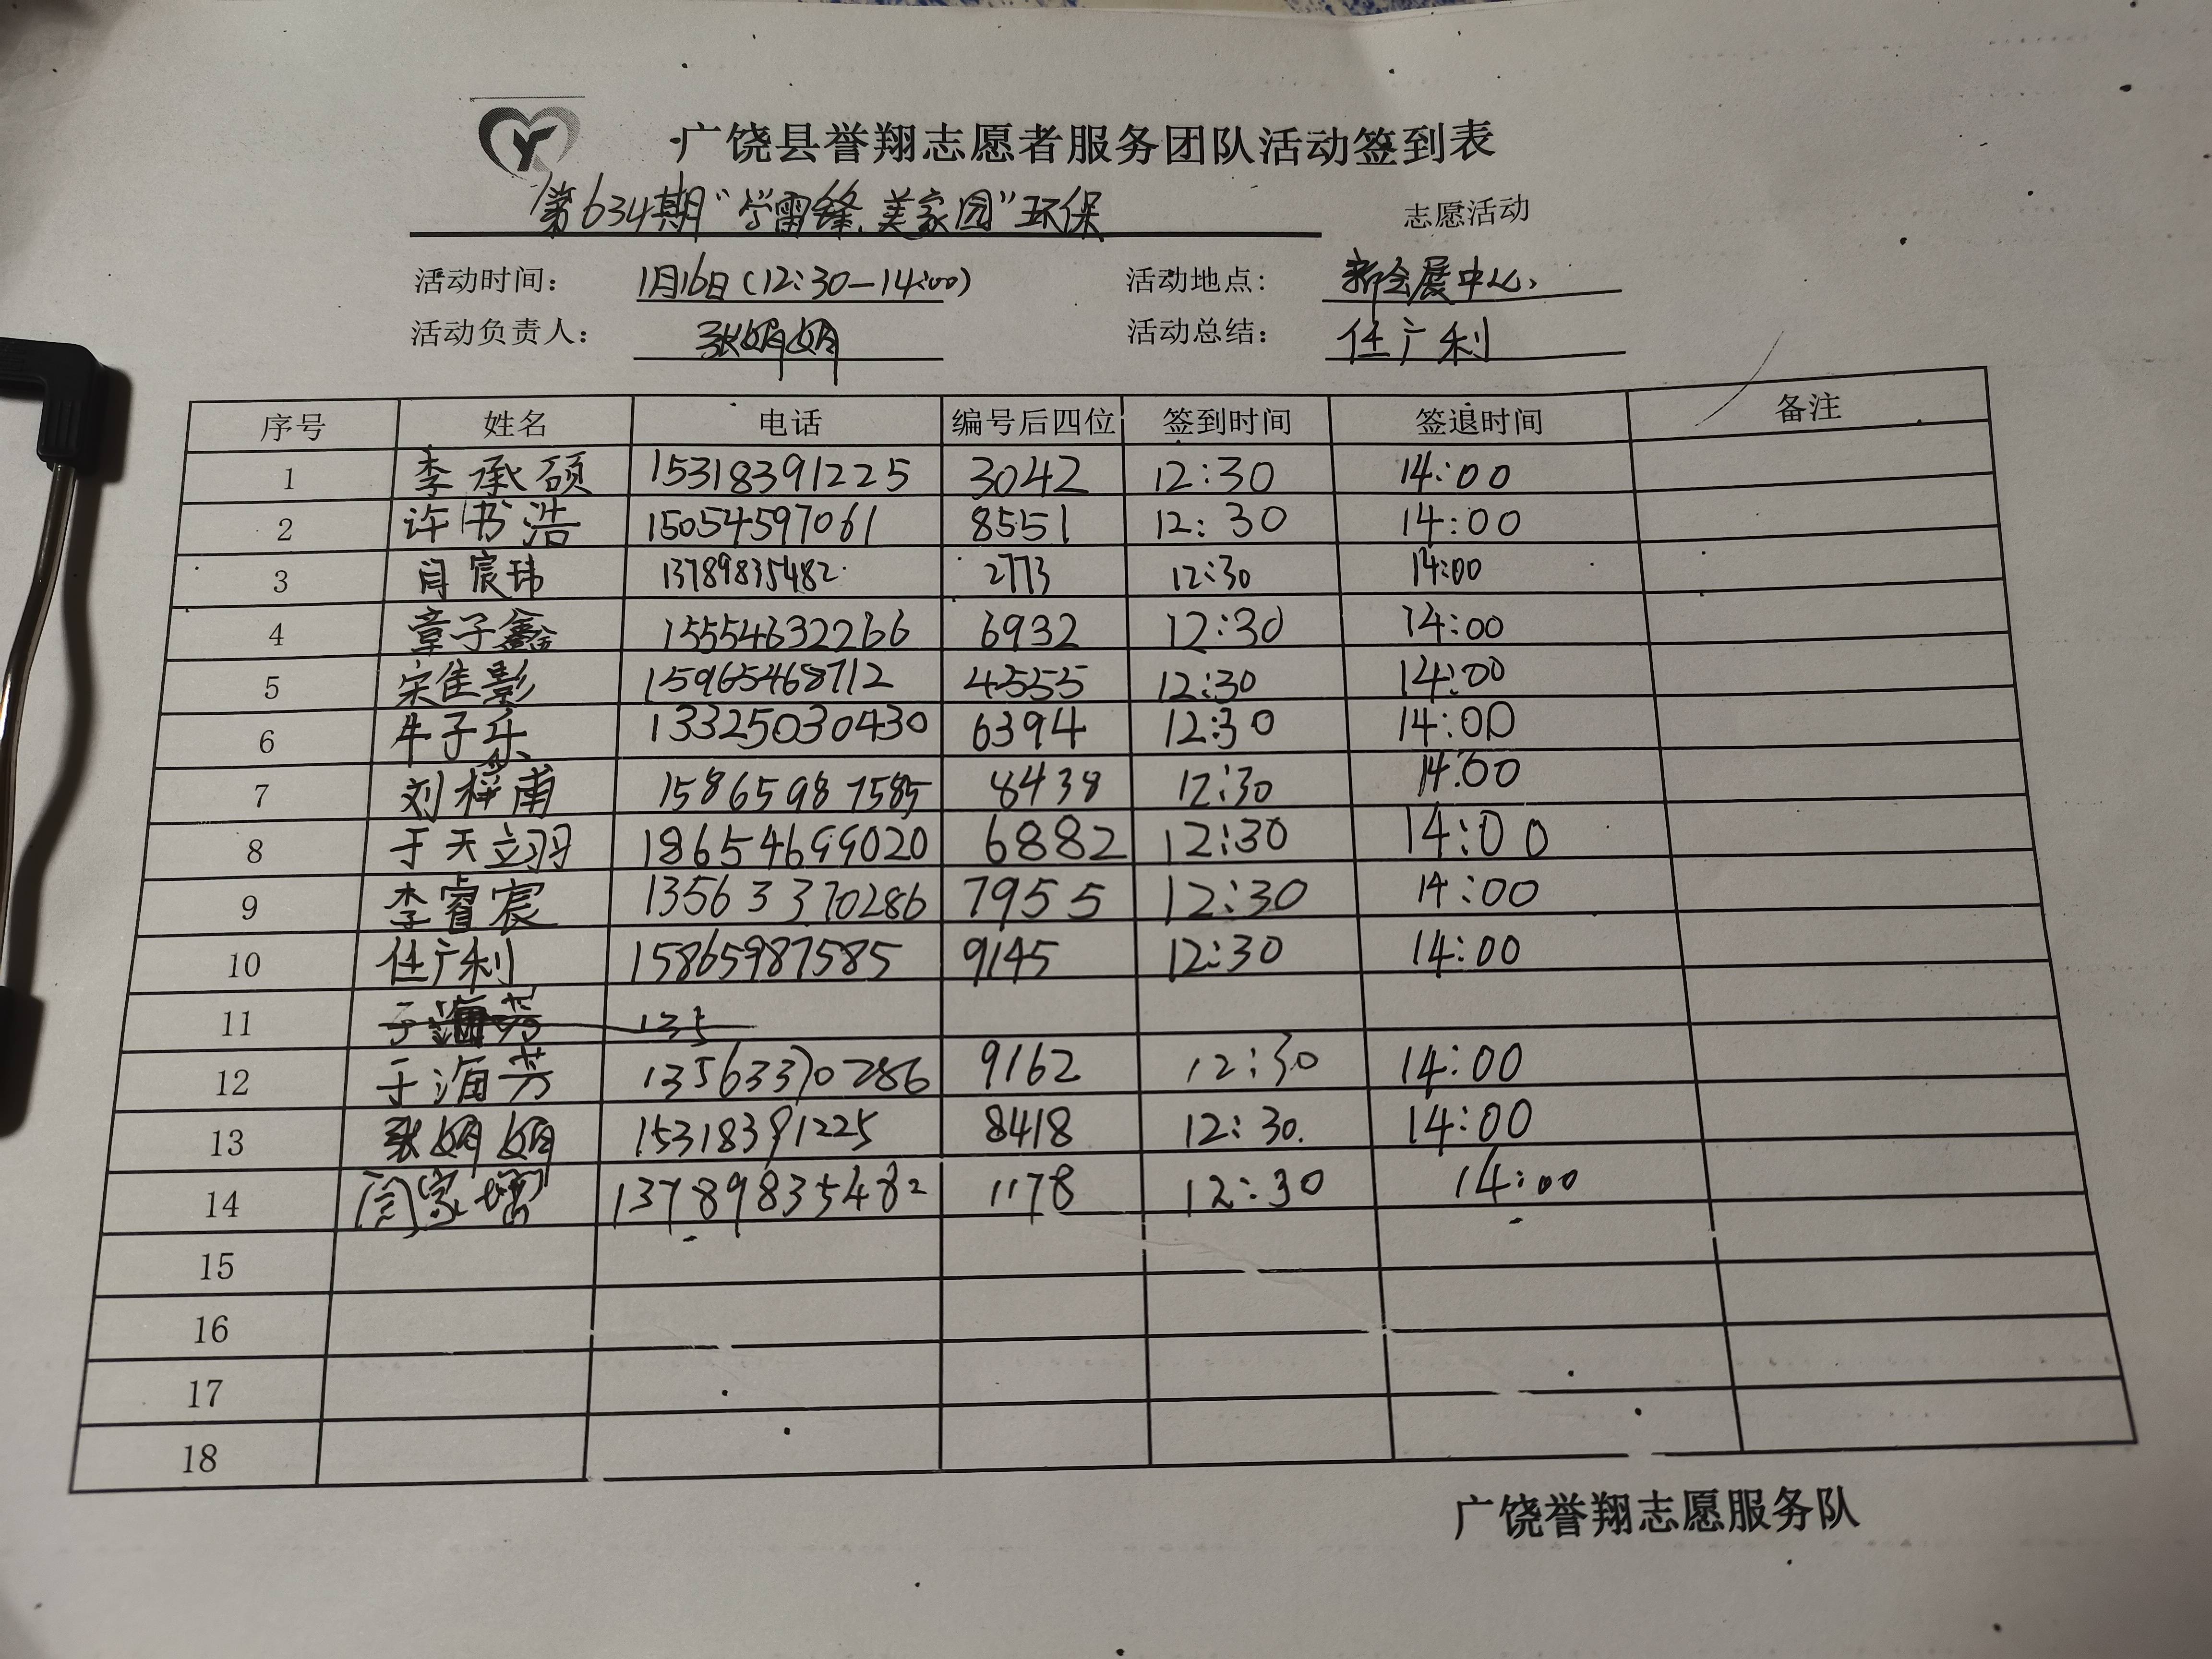 广饶县誉翔志愿者服务团队活动签到表
第634期“学雷锋.美家园”环保 志愿活动
活动时间: 1月16日(12:30—14:00) 活动地点: 新会展中心
活动负责人: 张娟娟 活动总结: 任广利
序号 姓名 电话 编号后四位 签到时间 签退时间 备注
1 李承硕 15318391225 3042 12:30 14:00
2 许书浩 15054597061 8551 12:30 14:00
3 闫宸玮 13789835482 2773 12:30 14:00
4 章子鑫 15554632266 6932 12:30 14:00
5 宋佳影 15965468712 4555 12:30 14:00
6 牛子乐 13325030430 6394 12:30 14:00
7 刘梓甫 15865987585 8438 12:30 14:00
8 于天翊 18654699020 6882 12:30 14:00
9 李睿宸 13563370286 7955 12:30 14:00
10 任广利 15865987585 9145 12:30 14:00
11 于海芳 135
12 于海芳 13563370286 9162 12:30 14:00
13 张娟娟 15318391225 8418 12:30. 14:00
14 闫家 13789835482 1178 12:30 14:00
15
16
17
18
广饶誉翔志愿服务队